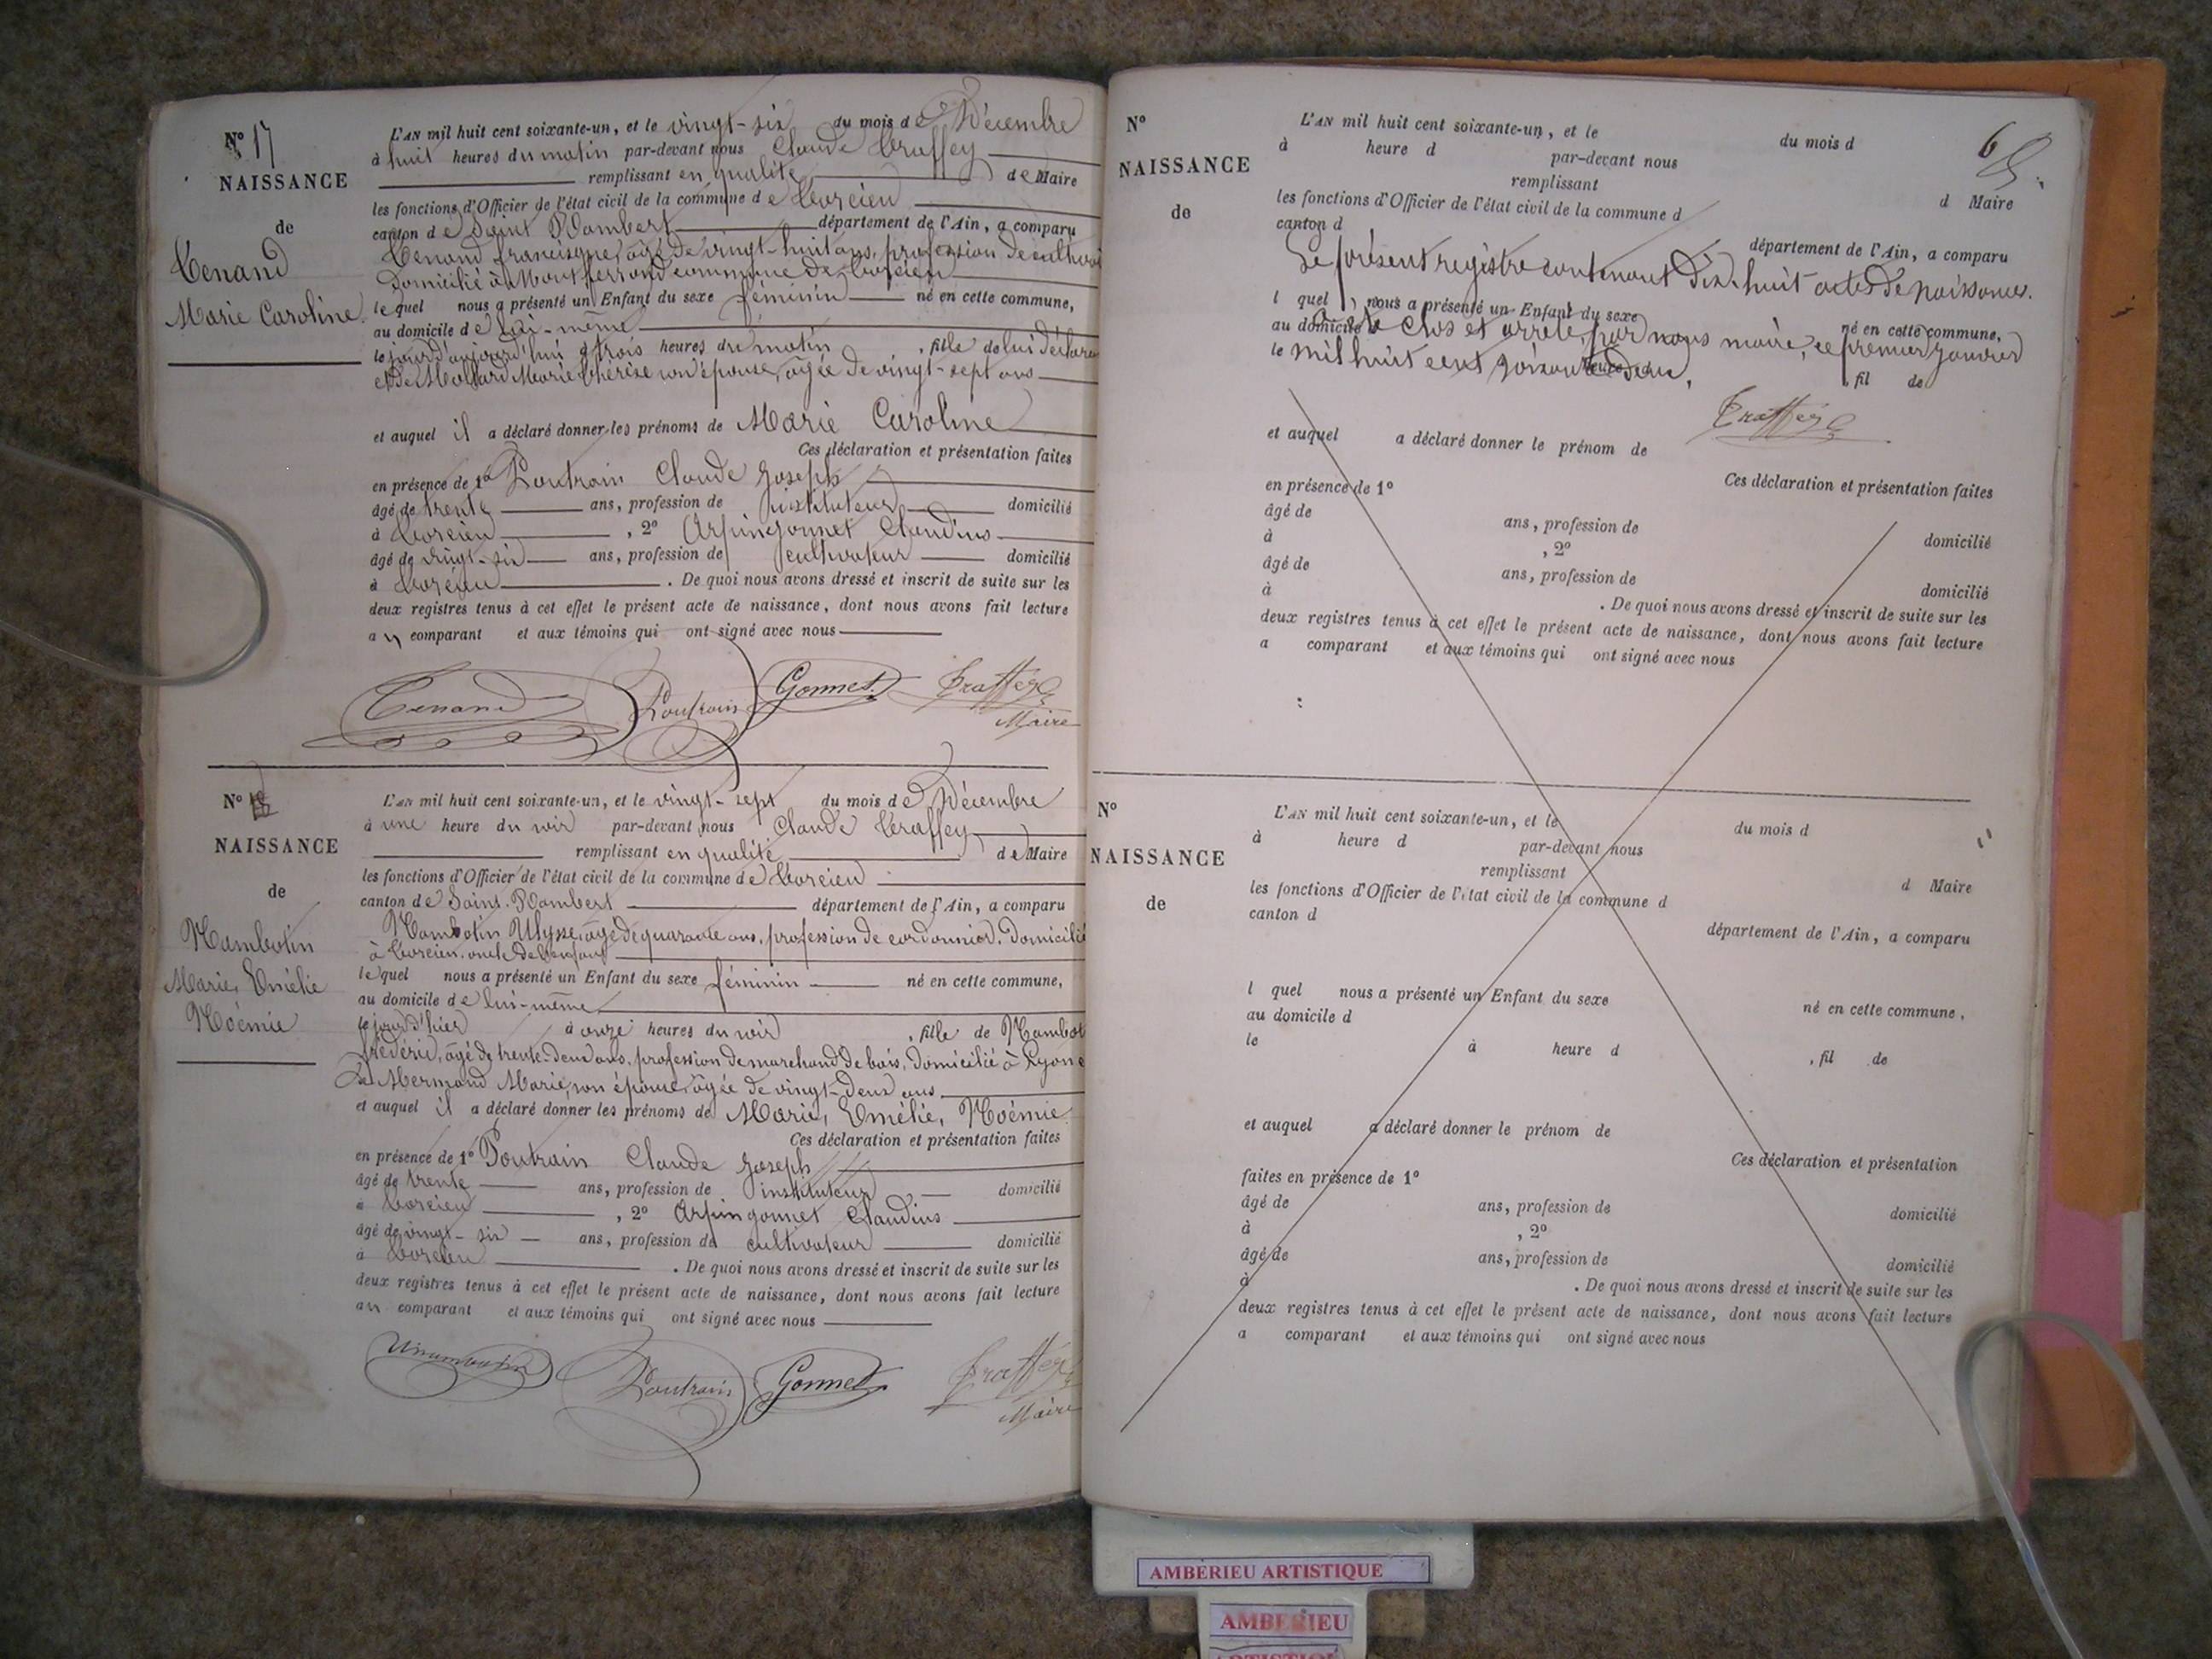 N° 17
NAISSANCE
de
Tenand
Marie Caroline
L'AN mil huit cent soixante-un, et le vingt-six du mois de Décembre
à huit heures du matin par-devant nous Claude Traffey
remplissant en qualité de Maire
les fonctions d'Officier de l'état civil de la commune de Torcieu
canton de Saint Rambert département de l'Ain, a comparu
Tenand francisque, âgé de vingt-huit ans, profession de
domicilié à Montferrand commune de Torcieu
lequel nous a présenté un Enfant du sexe féminin né en cette commune,
au domicile de lui-même
le jour d'aujourd'hui à trois heures du matin , fille de lui déclarant
et de Mollard Marie Thérèse son épouse, âgée de vingt-sept ans
et auquel il a déclaré donner les prénoms de Marie Caroline
Ces déclaration et présentation faites
en présence de 1° Poutrain Claude Joseph
âgé de trente ans, profession de instituteur domicilié
à Torcieu , 2° Arpin gonnet Claudius
âgé de vingt-six ans, profession de cultivateur domicilié
à Torcieu . De quoi nous avons dressé et inscrit de suite sur les
deux registres tenus à cet effet le présent acte de naissance, dont nous avons fait lecture
au comparant et aux témoins qui ont signé avec nous
Tenand Poutrain Gonnet Traffey
Maire
N° 18
NAISSANCE
de
Mambotin
Marie, Emélie
Noémie
L'AN mil huit cent soixante-un, et le vingt-sept du mois de Décembre
à une heure du soir par-devant nous Claude Traffey
remplissant en qualité de Maire
les fonctions d'Officier de l'état civil de la commune de Torcieu
canton de Saint-Rambert département de l'Ain, a comparu
Mambotin Ulysse, âgé de quarante ans, profession de cordonnier, domicilié
à Torcieu, oncle de l'enfant
lequel nous a présenté un Enfant du sexe féminin né en cette commune,
au domicile de lui-même
le jour d'hier à onze heures du soir , fille de Mambot
frédéric, âgé de trente-deux ans, profession de marchand de bois, domicilié à Lyon
de Mermand Marie, son épouse, âgée de vingt-deux ans
et auquel il a déclaré donner les prénoms de Marie, Emélie, Noémie
Ces déclaration et présentation faites
en présence de 1° Poutrain Claude Joseph
âgé de trente ans, profession de instituteur domicilié
à Torcieu , 2° Arpin gonnet Claudius
âgé de vingt-six ans, profession de cultivateur domicilié
à Torcieu . De quoi nous avons dressé et inscrit de suite sur les
deux registres tenus à cet effet le présent acte de naissance, dont nous avons fait lecture
au comparant et aux témoins qui ont signé avec nous
Poutrain Gonnet Traffey
Maire
6
N°
NAISSANCE
de
L'AN mil huit cent soixante-un, et le du mois d
à heure d par-devant nous
remplissant d Maire
les fonctions d'Officier de l'état civil de la commune d
canton d département de l'Ain, a comparu
Le présent registre contenant dix-huit actes de naissances.
l quel nous a présenté un Enfant du sexe né en cette commune,
au domicile d
a été clos et arrêté, par nous maire, ce premier Janvier
le heure d , fil de
mil huit cent soixante deux,
Traffey
et auquel a déclaré donner le prénom de
Ces déclaration et présentation faites
en présence de 1°
âgé de ans, profession de domicilié
à , 2°
âgé de ans, profession de domicilié
à . De quoi nous avons dressé et inscrit de suite sur les
deux registres tenus à cet effet le présent acte de naissance, dont nous avons fait lecture
a comparant et aux témoins qui ont signé avec nous
N°
NAISSANCE
de
L'AN mil huit cent soixante-un, et le du mois d
à heure d par-devant nous
remplissant d Maire
les fonctions d'Officier de l'état civil de la commune d
canton d département de l'Ain, a comparu
l quel nous a présenté un Enfant du sexe né en cette commune,
au domicile d
le à heure d , fil de
et auquel a déclaré donner le prénom de
Ces déclaration et présentation
faites en présence de 1°
âgé de ans, profession de domicilié
à , 2°
âgé de ans, profession de domicilié
à . De quoi nous avons dressé et inscrit de suite sur les
deux registres tenus à cet effet le présent acte de naissance, dont nous avons fait lecture
a comparant et aux témoins qui ont signé avec nous
AMBERIEU ARTISTIQUE
AMBERIEU
ARTISTIQUE